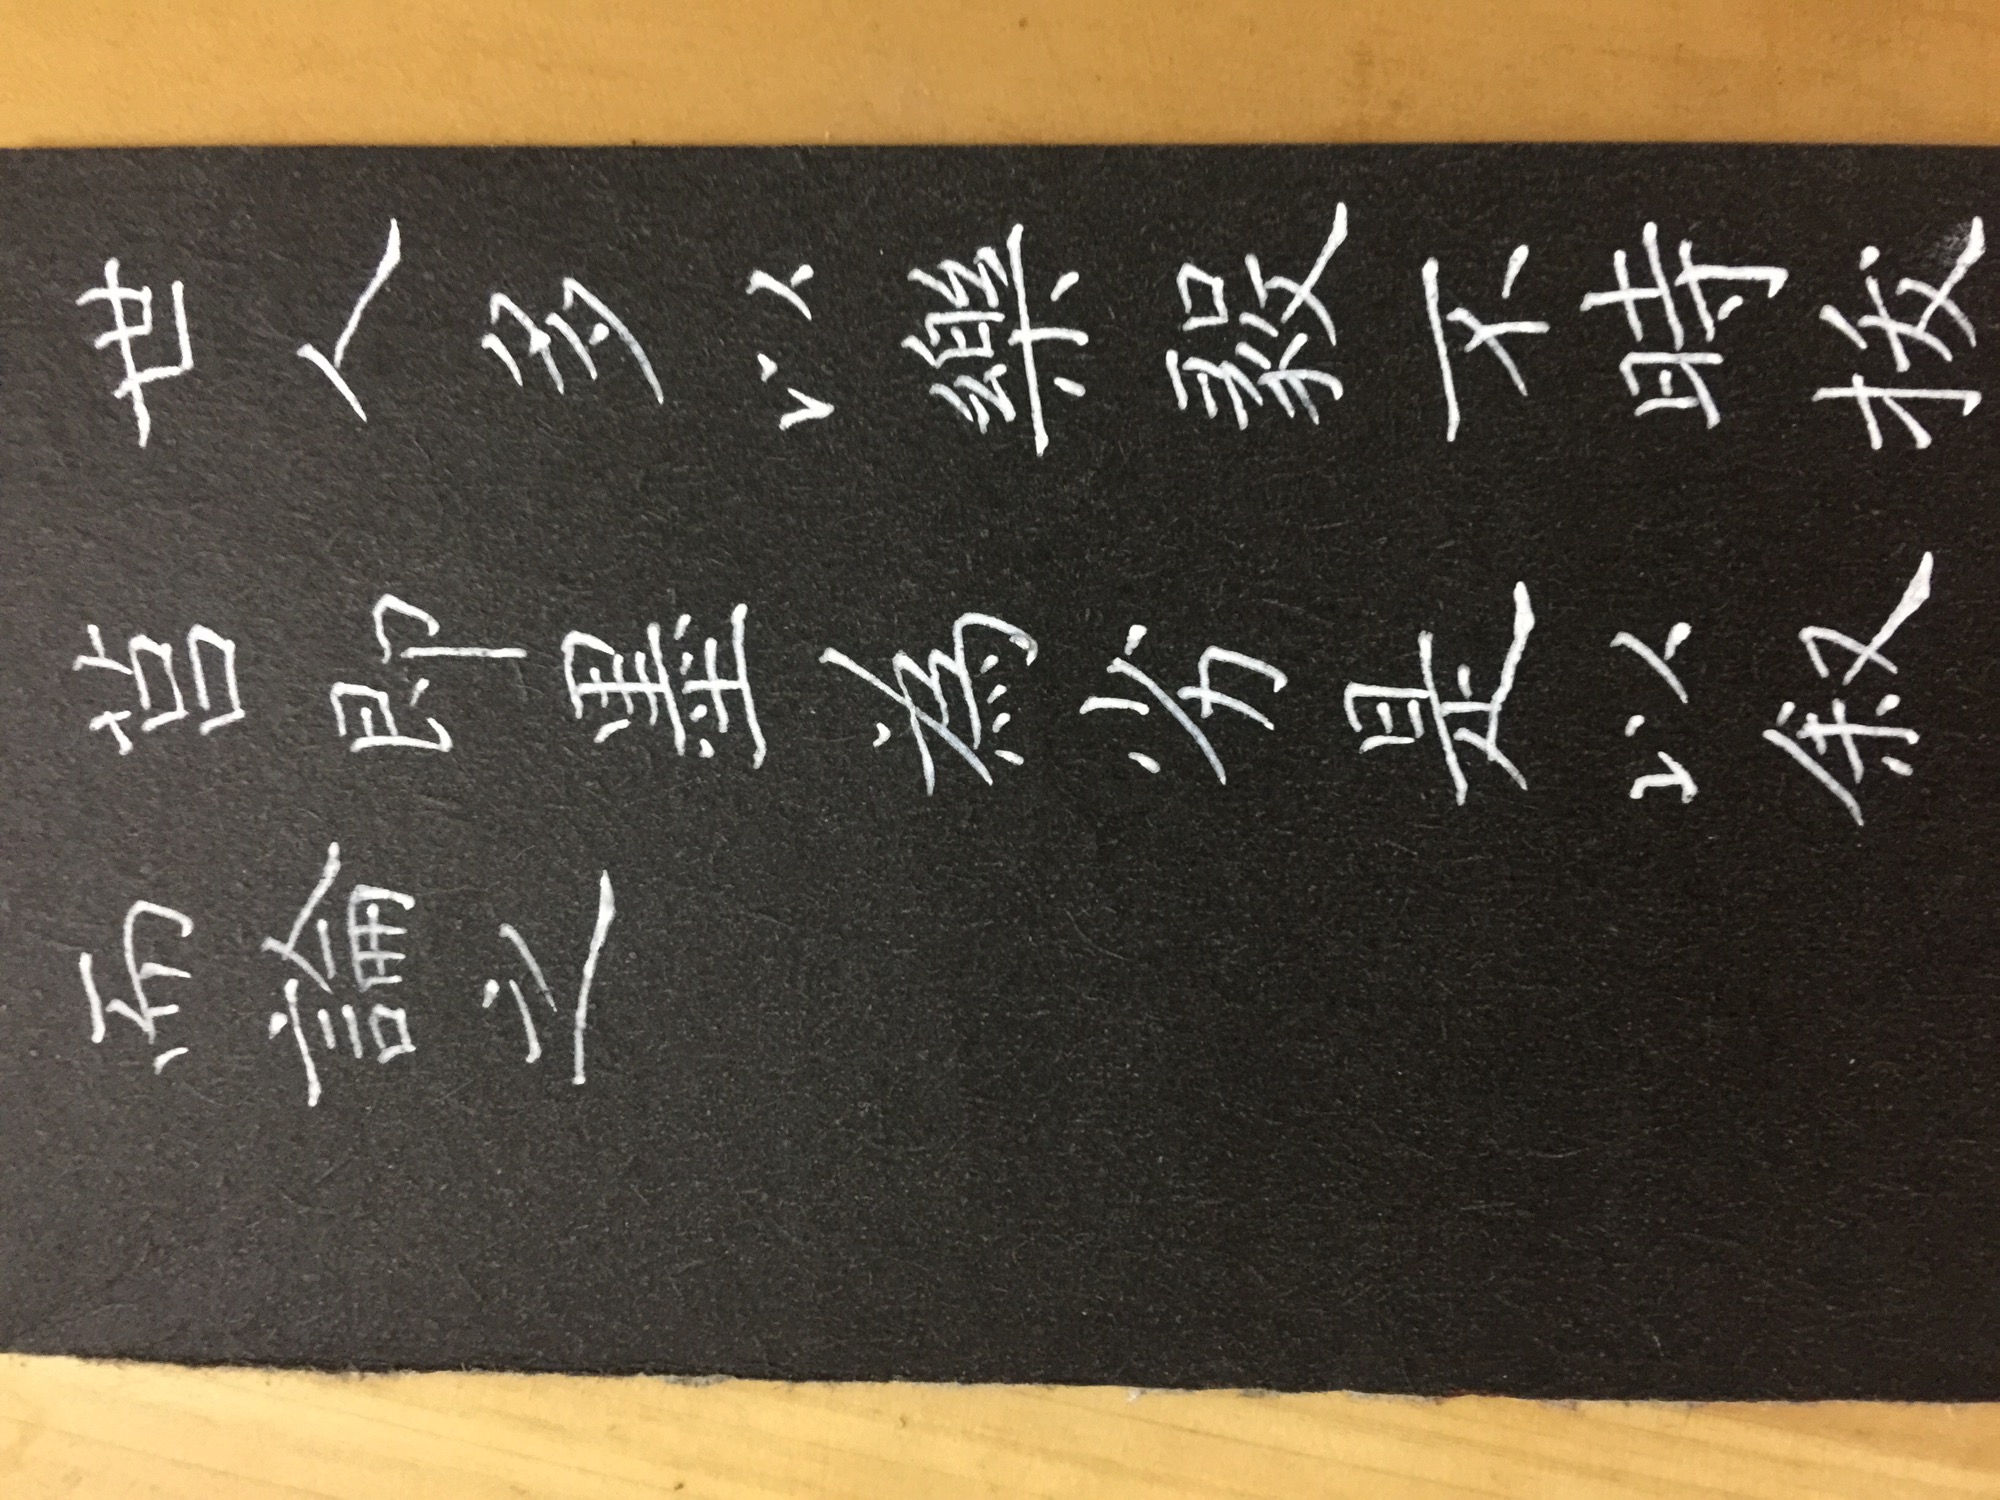 世人多以樂毅不時拔
莒即墨為劣是以叙
而論之